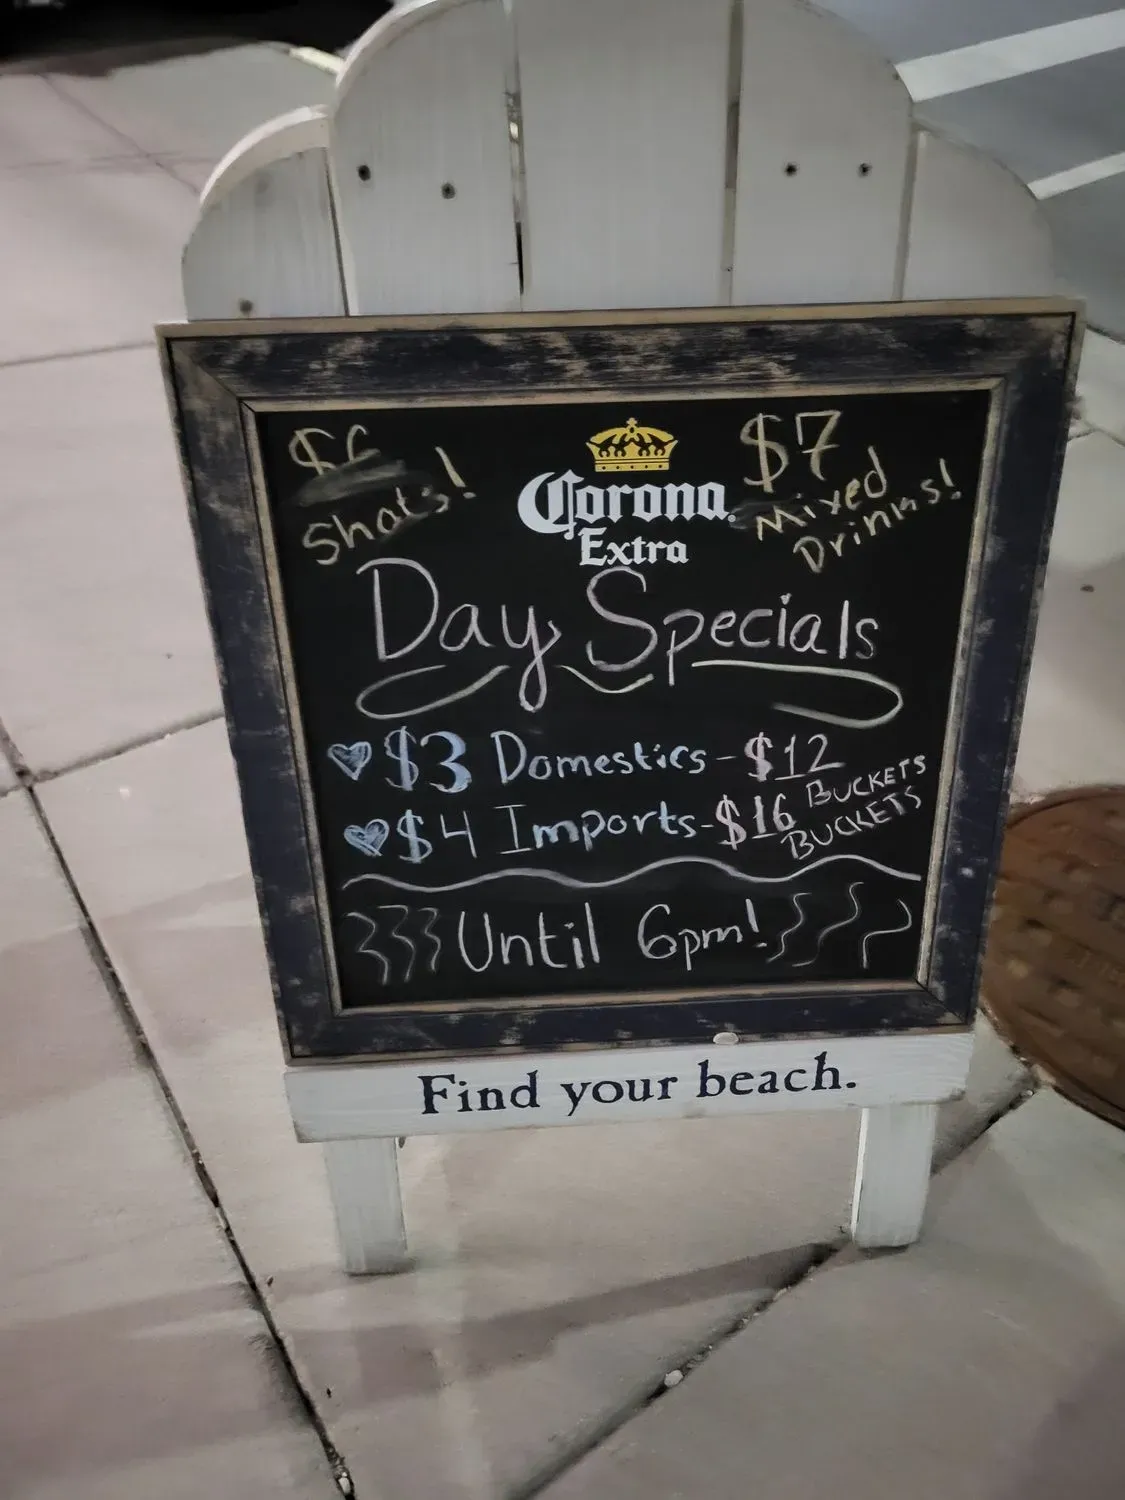 $6
Shots!
Corona
Extra
$7
Mixed
Drinks!
Day Specials
$3 Domestics - $12 BUCKETS
$4 Imports - $16 BUCKETS
Until 6pm!
Find your beach.